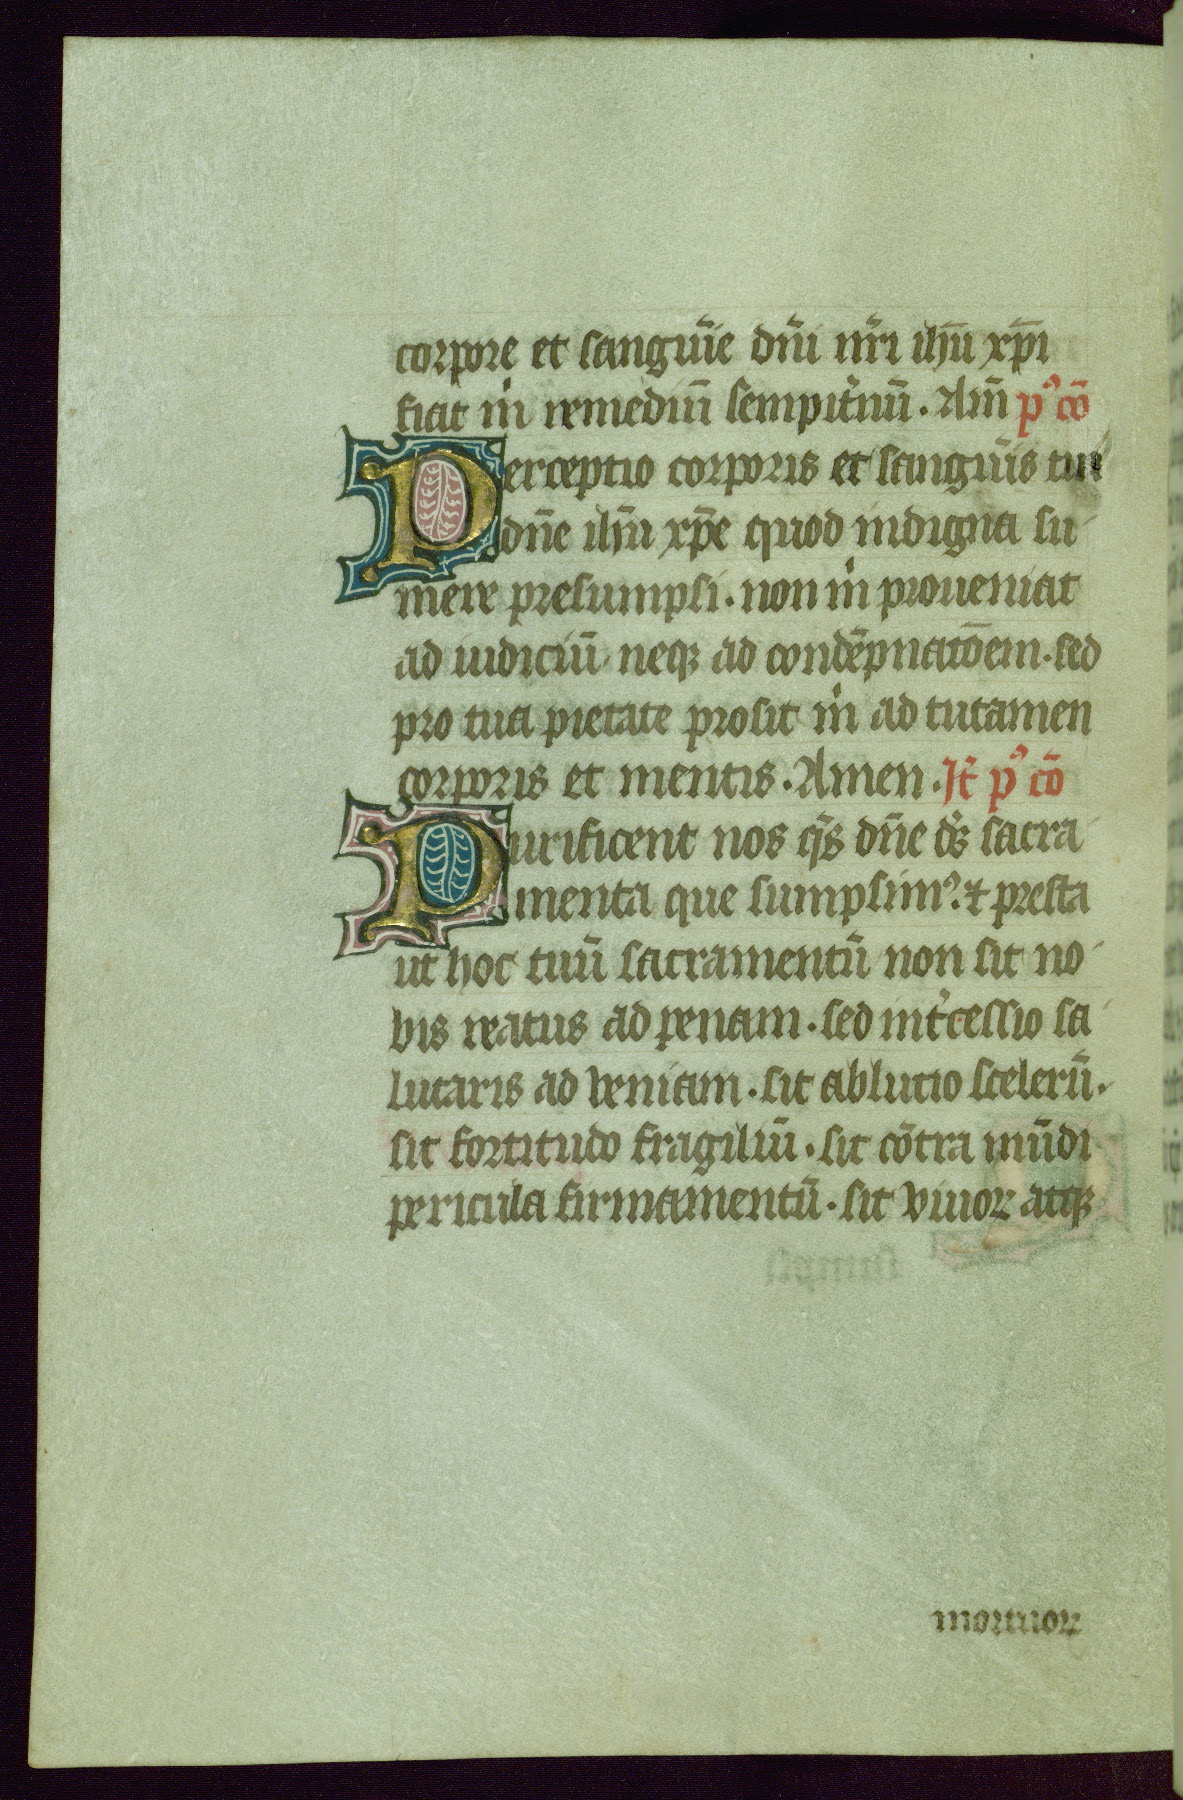 corpore et sanguīe dn̄i nr̄i ih̄u xp̄i
fiat m̊ remediū sempit̾nū. Am̄ pꝰ cō
Perceptio corporis et sanguīs tui
dn̄e ih̄u xp̄e quod indigna su-
mere presumpsi. non m̊ proueniat
ad iudiciū neqꝫ ad condēpnatōem. sed
pro tua pietate prosit m̊ ad tutamen
corporis et mentis. Amen. It̄ pꝰ cō
Purificent nos qs̄ dn̄e ds̄ sacra-
menta que sumpsimꝰ. ⁊ presta
ut hoc tuū sacramentū non sit no-
bis reatus ad penam. sed int̾cessio sa-
lutaris ad veniam. sit ablutio scelerū.
sit fortitudo fragiliū. sit cōtra mūdi
pericula firmamentū. sit viuoꝝ atqꝫ
mortuoꝝ